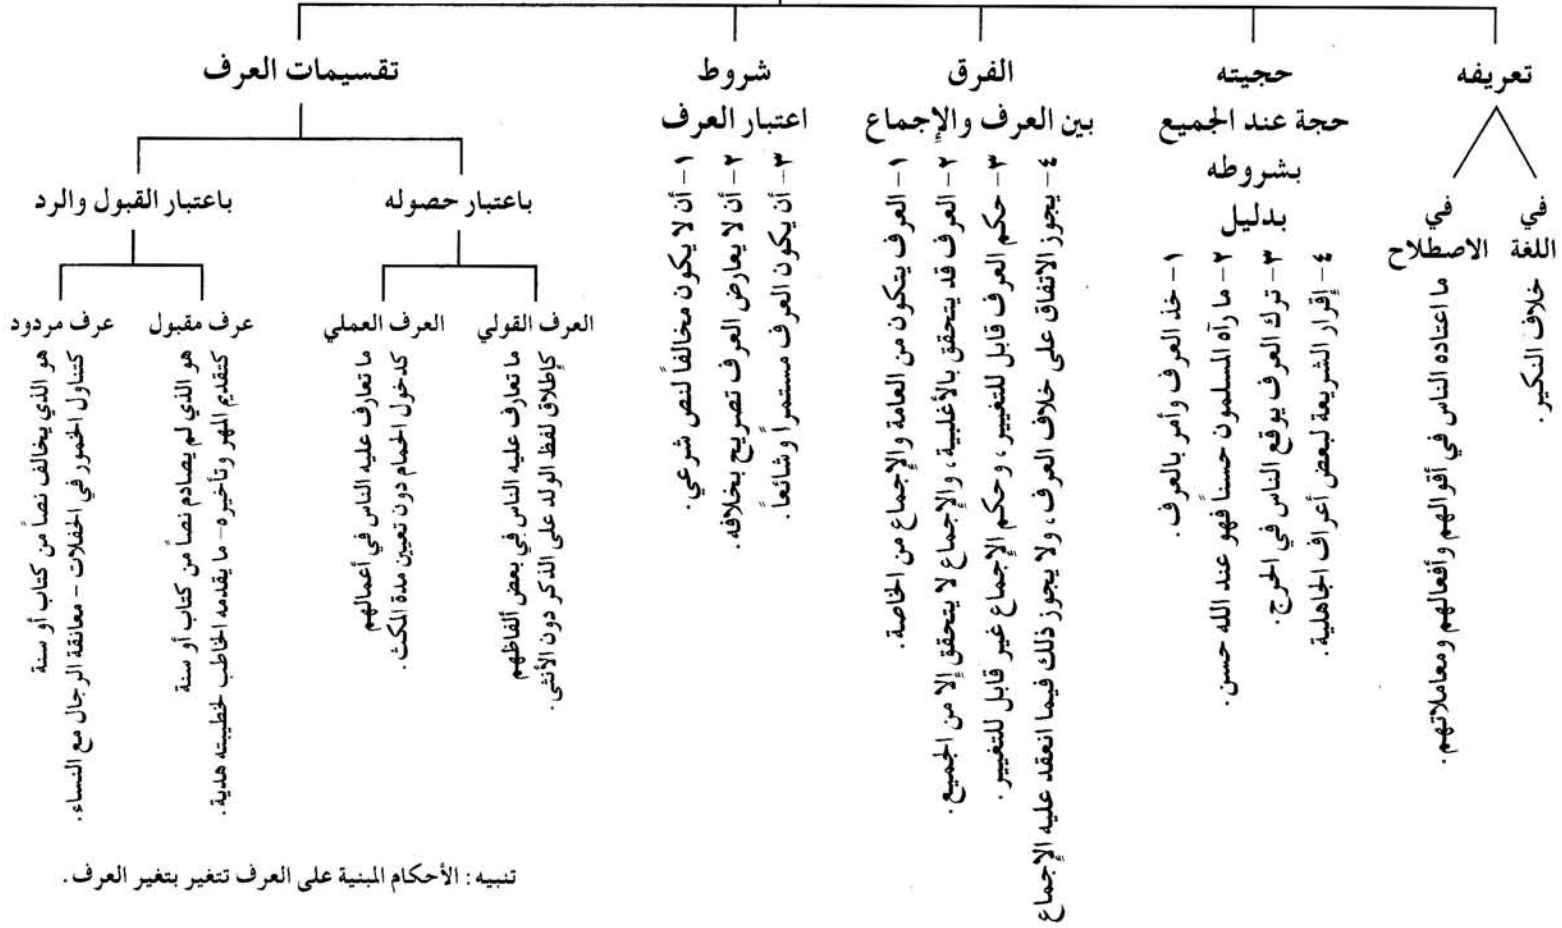 تعريفه
في
اللغة
خلاف النكير.
في
الاصطلاح
ما اعتاده الناس في أقوالهم وأفعالهم ومعاملاتهم.
حجيته
حجة عند الجميع
بشروطه
بدليل
١- خذ العرف وأمر بالعرف.
٢- ما رآه المسلمون حسناً فهو عند الله حسن.
٣- ترك العرف يوقع الناس في الحرج.
٤- إقرار الشريعة لبعض أعراف الجاهلية.
الفرق
بين العرف والإجماع
١- العرف يتكون من العامة والإجماع من الخاصة.
٢- العرف قد يتحقق بالأغلبية، والإجماع لا يتحقق إلا من الجميع.
٣- حكم العرف قابل للتغيير، وحكم الإجماع غير قابل للتغيير.
٤- يجوز الاتفاق على خلاف العرف، ولا يجوز ذلك فيما انعقد عليه الإجماع
شروط
اعتبار العرف
١- أن لا يكون مخالفاً لنص شرعي.
٢- أن لا يعارض العرف تصريح بخلافه.
٣- أن يكون العرف مستمراً وشائعاً.
تقسيمات العرف
باعتبار حصوله
العرف القولي
ما تعارف عليه الناس في بعض ألفاظهم
كإطلاق لفظ الولد على الذكر دون الأنثى.
العرف العملي
ما تعارف عليه الناس في أعمالهم
كدخول الحمام دون تعيين مدة المكث.
باعتبار القبول والرد
عرف مقبول
هو الذي لم يصادم نصاً من كتاب أو سنة
كتقديم المهر وتأخيره- ما يقدمه الخاطب لخطيبته هدية.
عرف مردود
هو الذي يخالف نصاً من كتاب أو سنة
كتناول الخمور في الحفلات - معانقة الرجال مع النساء.
تنبيه: الأحكام المبنية على العرف تتغير بتغير العرف.